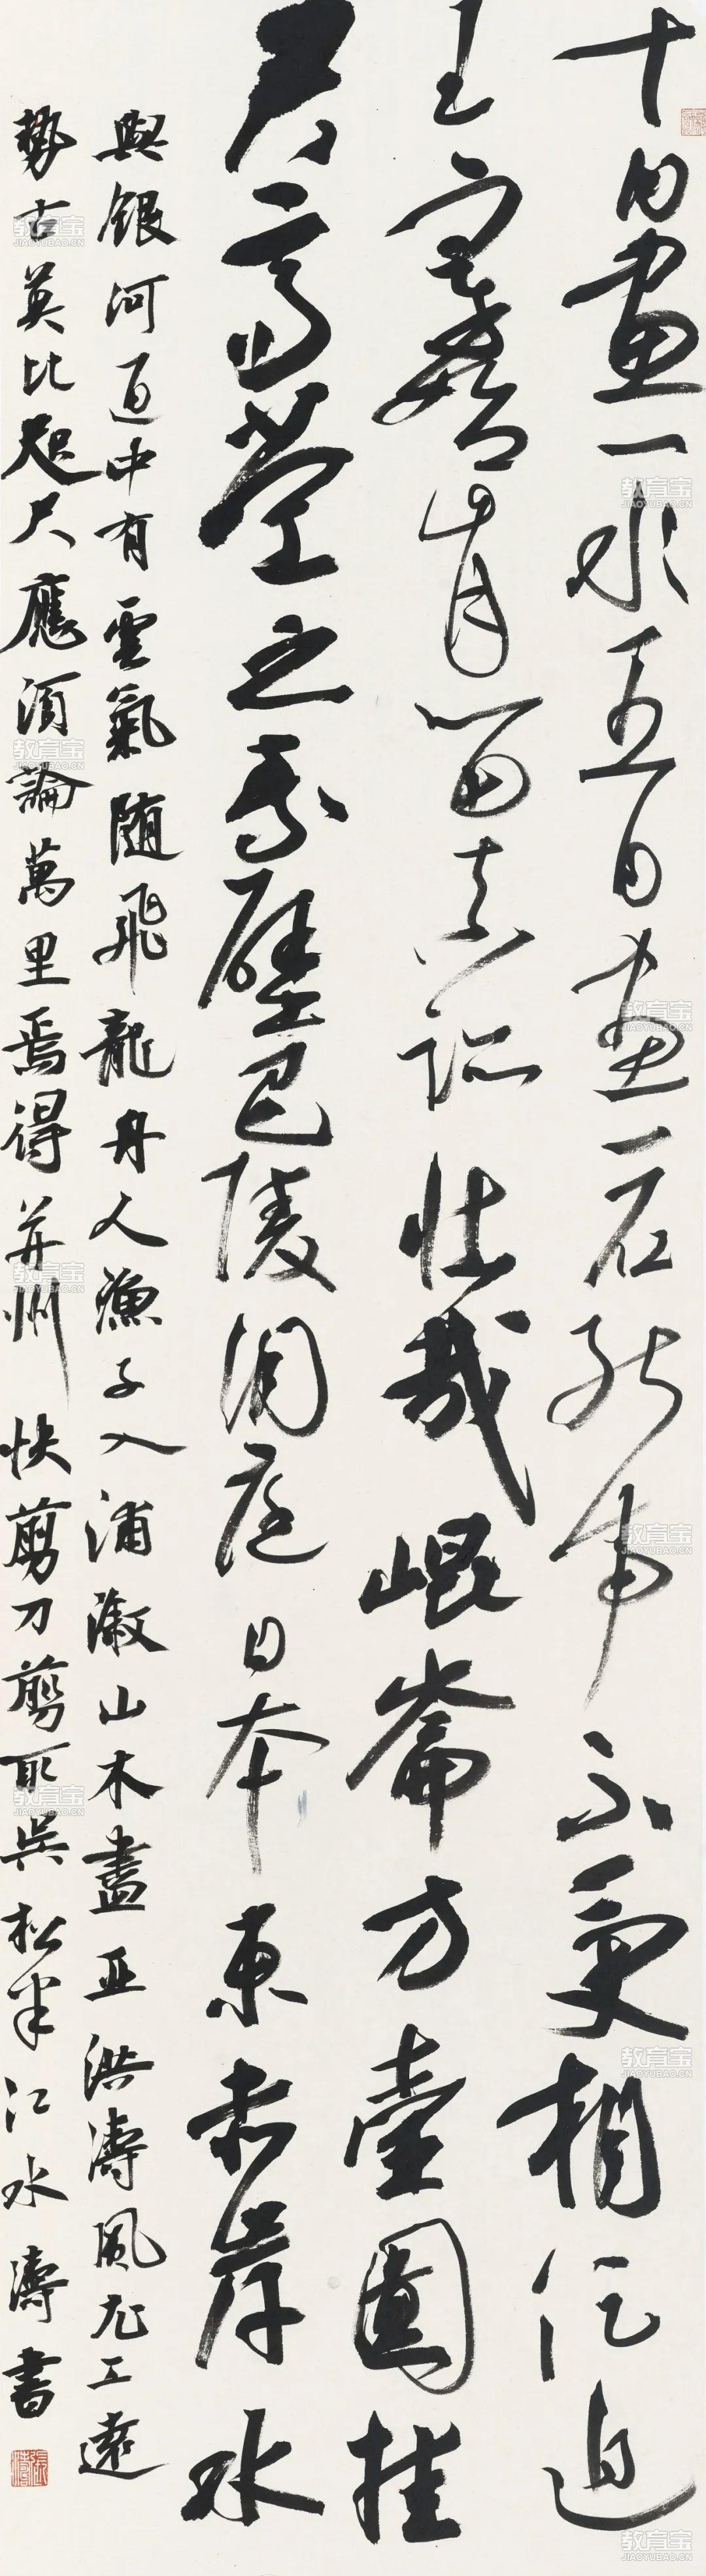 十日畫一水五日畫一石能事不受相促迫
王宰始肯留真跡壯哉崐崙方壺圖挂
君高堂之素壁巴陵洞庭日本東赤岸水
與銀河通中有雲氣随飛龍舟人漁子入浦溆山木盡亞洪濤風尤工遠
勢古莫比咫尺應須論萬里焉得并州快剪刀剪取吳松半江水濤書
教育宝
JIAOYUBAO.CN